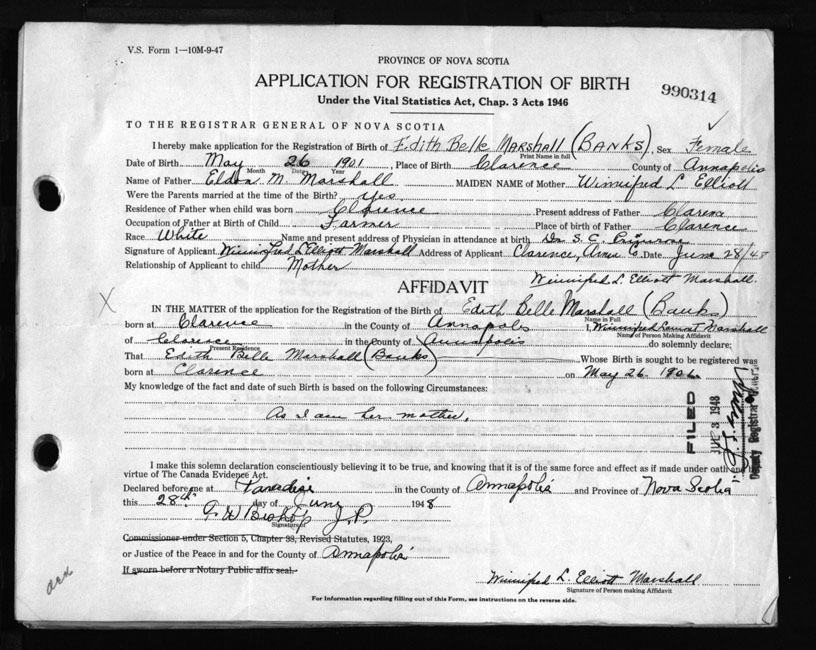 V.S. Form 1—10M-9-47
PROVINCE OF NOVA SCOTIA
APPLICATION FOR REGISTRATION OF BIRTH
990314
Under the Vital Statistics Act, Chap. 3 Acts 1946
TO THE REGISTRAR GENERAL OF NOVA SCOTIA
I hereby make application for the Registration of Birth of Edith Belle Marshall (Banks), Sex Female
Print Name in full
Date of Birth May 26 1901, Place of Birth Clarence County of Annapolis
Month Date Year
Name of Father Eldon M. Marshall MAIDEN NAME of Mother Winnifred L Elliott
Were the Parents married at the time of the Birth? Yes
Residence of Father when child was born Clarence Present address of Father Clarence
Occupation of Father at Birth of Child Farmer Place of birth of Father Clarence
Race White Name and present address of Physician in attendance at birth Dr. S. C.
Signature of Applicant Winnifred L Elliott Marshall Address of Applicant Clarence, Anna Co. Date June 28/48
Relationship of Applicant to child Mother
Winnifred L. Elliott Marshall
AFFIDAVIT
X
IN THE MATTER of the application for the Registration of the Birth of Edith Belle Marshall (Banks)
Name in Full
born at Clarence in the County of Annapolis I, Winnifred Marshall
Name of Person Making Affidavit
of Clarence in the County of Annapolis do solemnly declare:
Present Residence
That Edith Belle Marshall (Banks) Whose Birth is sought to be registered was
born at Clarence on May 26 1901
My knowledge of the fact and date of such Birth is based on the following Circumstances:
As I am her mother.
FILED
3 1948
Deputy Registrar
I make this solemn declaration conscientiously believing it to be true, and knowing that it is of the same force and effect as if made under oath and
virtue of The Canada Evidence Act.
Declared before me at Paradise in the County of Annapolis and Province of Nova Scotia
this 28th day of June 1948
F. W Bishop J.P.
Signature of
Commissioner under Section 5, Chapter 38, Revised Statutes, 1923,
or Justice of the Peace in and for the County of Annapolis
If sworn before a Notary Public affix seal.
Winnifred L. Elliott Marshall
Signature of Person making Affidavit
For Information regarding filling out of this Form, see instructions on the reverse side.